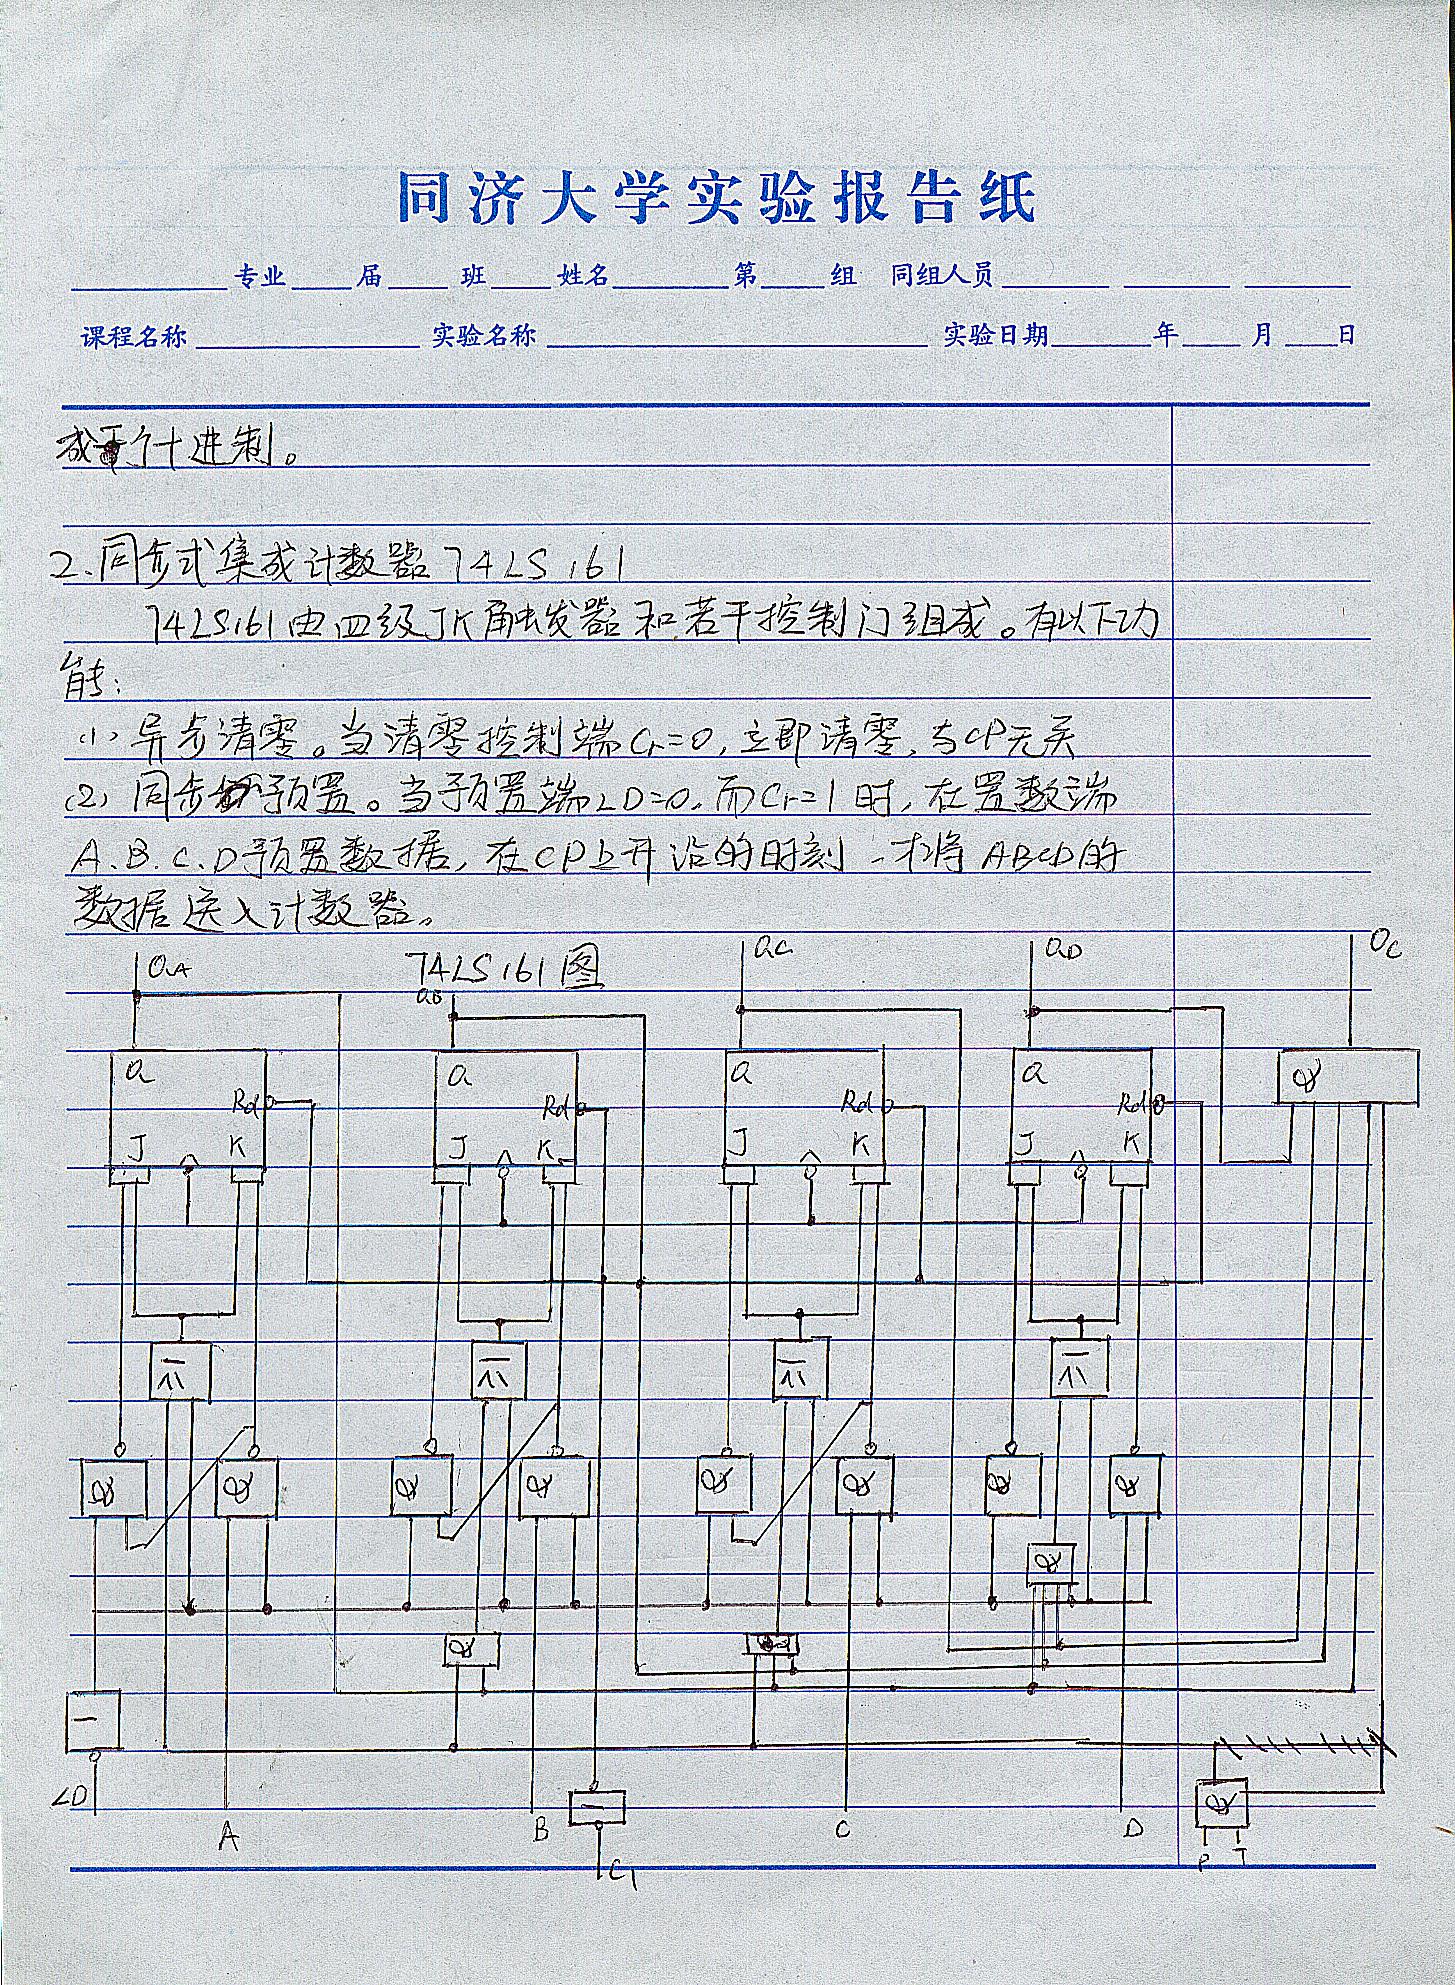 同济大学实验报告纸
专业 届 班 姓名 第 组 同组人员
课程名称 实验名称 实验日期 年 月 日
成 个十进制。
2、同步式集成计数器74LS161
74LS161由四级JK触发器和若干控制门组成。有以下功
能:
(1) 异步清零。当清零控制端Cr=0,立即清零,与CP无关
(2) 同步 预置。当预置端LD=0,而Cr=1时,在置数端
A.B.C.D预置数据,在CP上升沿的时刻 才将ABCD的
数据送入计数器。
QA 74LS161图 QC QD OC
QB
Q Q Q Q &
Rd Rd Rd Rd
J K J K J K J K
≥1 ≥1 ≥1 ≥1
& & & & & & & &
&
&
1
LD 1 &
A B C D
P T
Cr